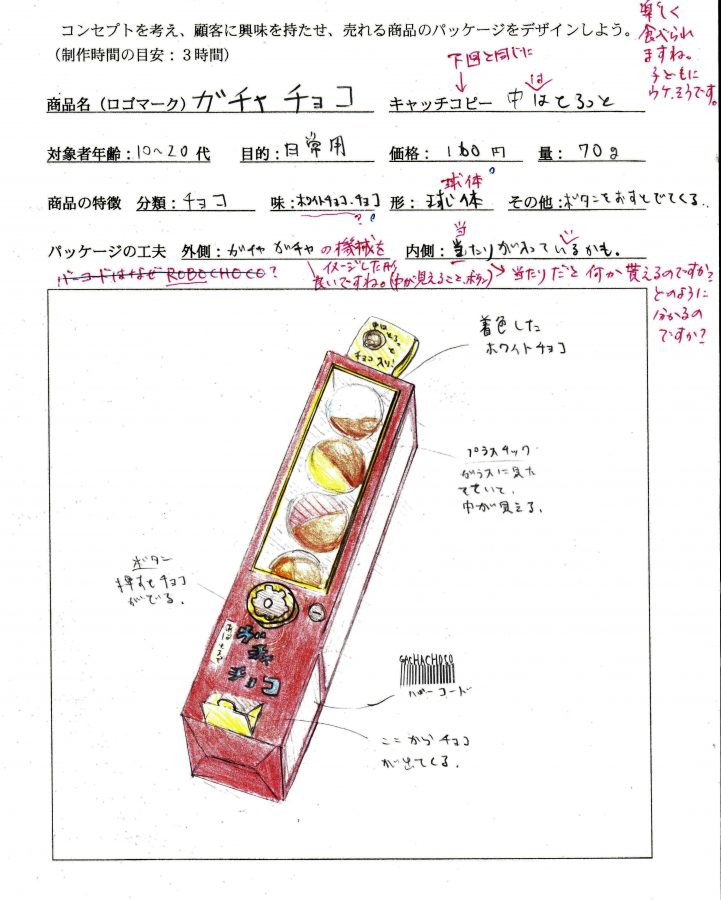 コンセプトを考え、顧客に興味を持たせ、売れる商品のパッケージをデザインしよう。
（制作時間の目安：３時間）
楽しく
食べられ
ますね。
子どもに
ウケそうです。
下図と同じに
は
商品名（ロゴマーク）ガチャチョコ キャッチコピー 中はとろっと
対象者年齢：10～20代 目的：日常用 価格：160円 量：70g
球体
商品の特徴 分類：チョコ 味：ホワイトチョコ・チョコ 形：球体 その他：ボタンをおすとでてくる。
?
当
パッケージの工夫 外側：ガチャガチャの機械を 内側：当たりがついているかも。
イメージした所
良いですね。(中が見えること、ボタン)
バーコードはなぜROBOCHOCO?
当たりだと何か貰えるのですか?
どのように
分かるの
ですか?
中は
とろっと
チョコ入り!
着色した
ホワイトチョコ
プラスチック
ガラスに見た
てていて、
中が見える。
ボタン
押すとチョコ
がでる。
ガチャ
チョコ
GACHACHOCO
バーコード
ここからチョコ
が出てくる。